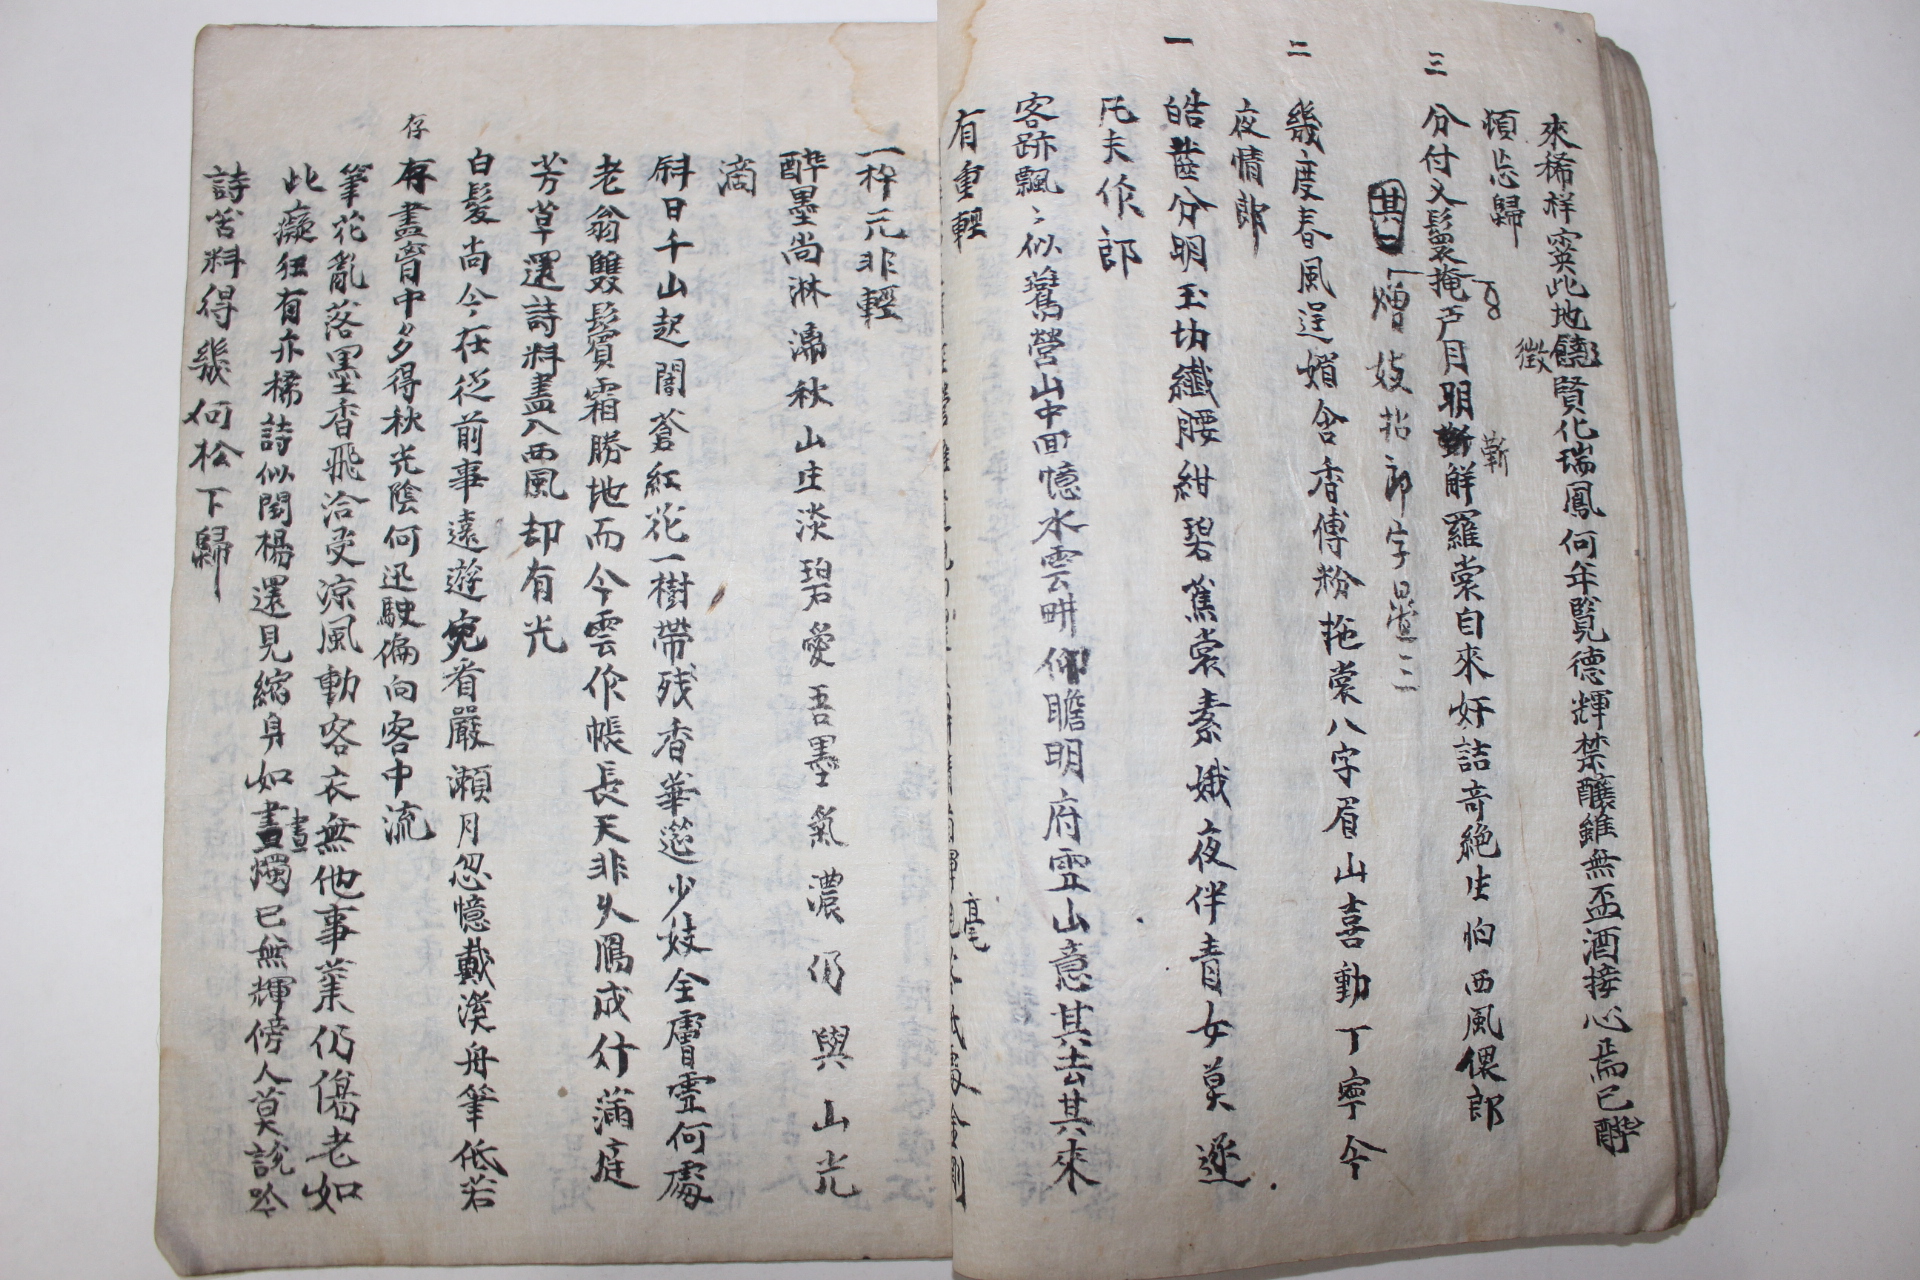 來稀祥霙此地饒賢化瑞鳳何年覧德輝禁釀雖無盃酒接心焉已醉
徵
頃忘歸
三
分付叉鬟掩戶月明鮮羅裳自來奸詰奇絶生怕西風偎郎
嶄
其二 憎妓招郎字疊三
二
幾度春風逞媚含香傅粉拖裳八字眉山喜動丁寧今
夜情郎
一
皓齒分明玉切纖腰紺碧蕉裳素娥夜伴青女莫逐
凡夫作郎
客跡飄〻似鷺營山中回憶水雲畊仰瞻明府雪山意其去其來
有重輕
毫
一秤元非輕
醉墨尚淋漓秋山庄淡碧愛吾墨氣濃仍與山光
滴
斜日千山起闇蒼紅花一樹帶殘香華筵少妓全膚雪何處
老翁雙鬂霜勝地而今雲作帳長天非久鴈成行滿庭
芳草還詩料盡入西風却有光
白髮尚今在從前事遠遊宛看嚴瀨月忽憶戴溪舟筆低若
存
存盡胷中多得秋光陰何迅駛偏向客中流
筆花亂落墨香飛洽受凉風動客衣無他事業仍傷老如
此癡狂有亦稀詩似閏楊還見縮身如畫燭已無輝傍人莫說吟
晝
詩苦料得幾何松下歸